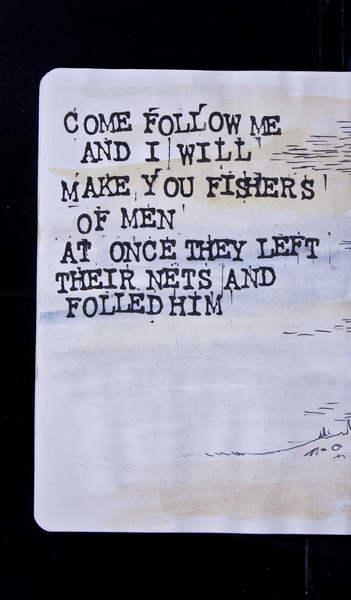 COME FOLLOW ME
AND I WILL
MAKE YOU FISHERS
OF MEN
AT ONCE THEY LEFT
THEIR NETS AND
FOLLED HIM